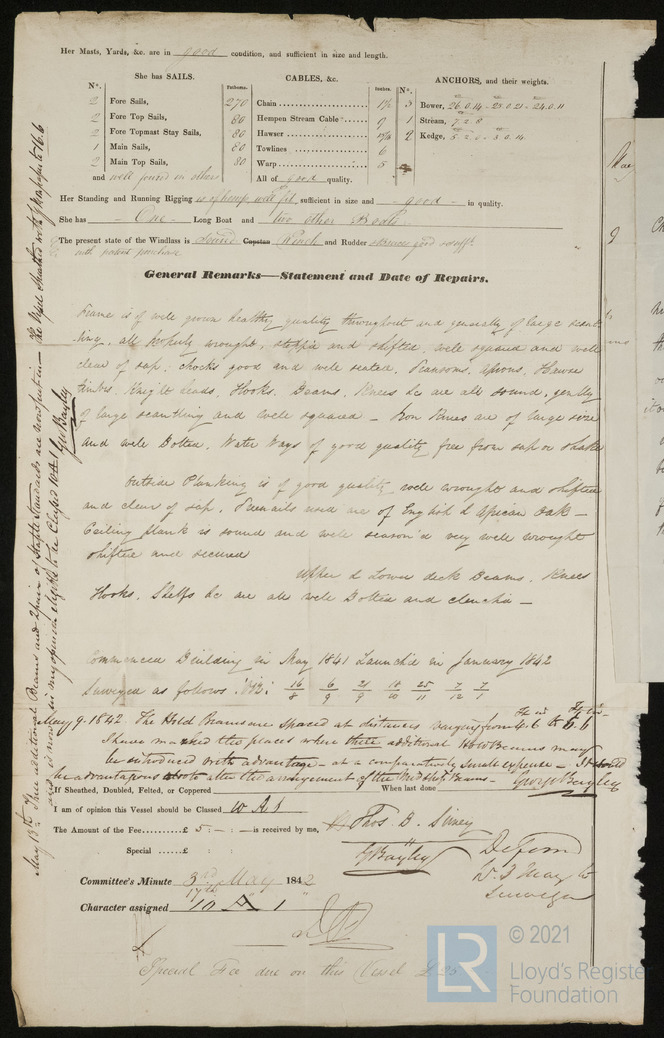 Her Masts, Yards, &c. are in good condition, and sufficient in size and length.
She has SAILS.
CABLES, &c.
ANCHORS, and their weights.
N°.
Fathoms.
Inches.
N°.
2 Fore Sails, 270 Chain 1 3 Bower, 26.0.14 - 25.0.21 - 24.0.11
2 Fore Top Sails, 80 Hempen Stream Cable 9 1 Stream, 7.2.8
2 Fore Topmast Stay Sails, 80 Hawser 2 Kedge, 5.2.0 - 3.0.14
1 Main Sails, 80 Towlines 6
2 Main Top Sails, 80 Warp 5
and well found in others All of good quality.
Her Standing and Running Rigging is of hemp well fit, sufficient in size and good in quality.
She has One Long Boat and two other Boats
The present state of the Windlass is Sound Capstan Winch and Rudder good
with patent purchase
General Remarks—Statement and Date of Repairs.
Frame is of well grown healthy quality throughout and generally of large scant
ling, all properly wrought, and shifted, well squared and well
clear of sap, chocks good and well seated, Transoms, Aprons, Hawse
timbers, Knight heads, Hooks, Beams, Knees &c are all sound, genlly
of large scantling and well squared — Iron Knees are of large size
and well Bolted. Water Ways of good quality free from sap or shake
Outside Planking is of good quality well wrought and shifted
and clear of sap. Treenails used are of English & African Oak —
Ceiling plank is sound and well season'd very well wrought
shifted and secured
Upper & Lower deck Beams, Knees
Hooks, Shelfs &c are all well Bolted and clench'd —
Commenced Building in May 1841 Launch'd in January 1842
Surveyed as follows Viz: 16/8 6/9 21/9 18/10 25/11 7/12 7/1
May 9. 1842 The Hold Beams are spaced at distances varying from 4.6 to 5.6
I have marked the places where three additional Hold Beams may
be introduced with advantage — at a comparatively small expense —
be advantageous to alter the arrangement of the Beams — George Bayley
If Sheathed, Doubled, Felted, or Coppered When last done
I am of opinion this Vessel should be Classed A 1
The Amount of the Fee £ 5 : - : - is received by me, Thos. B. Simey
Special £ : :
G Bayley
Committee's Minute 3rd May 1842
17th
Character assigned 10 A 1
Special Fee due on this Vessel £ 25
May 13th Three additional Beams and 2 pair of Staple Standards are now put in — the Vessel
and is now in my opinion eligible to be Classed 10 A 1 G Bayley
© 2021
LR
Lloyd's Register
Foundation